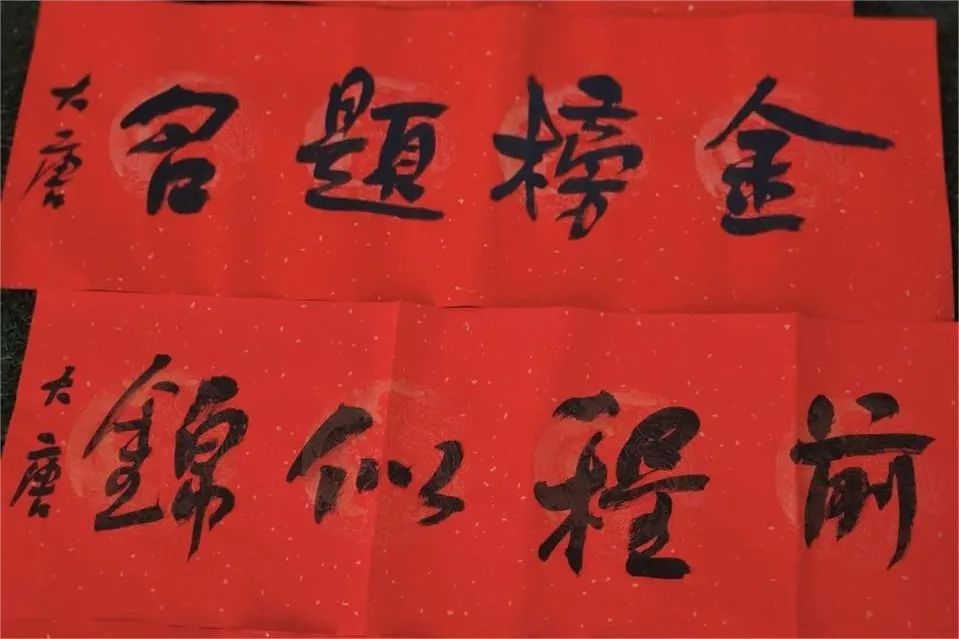 金榜題名
大唐
前程似錦
大唐